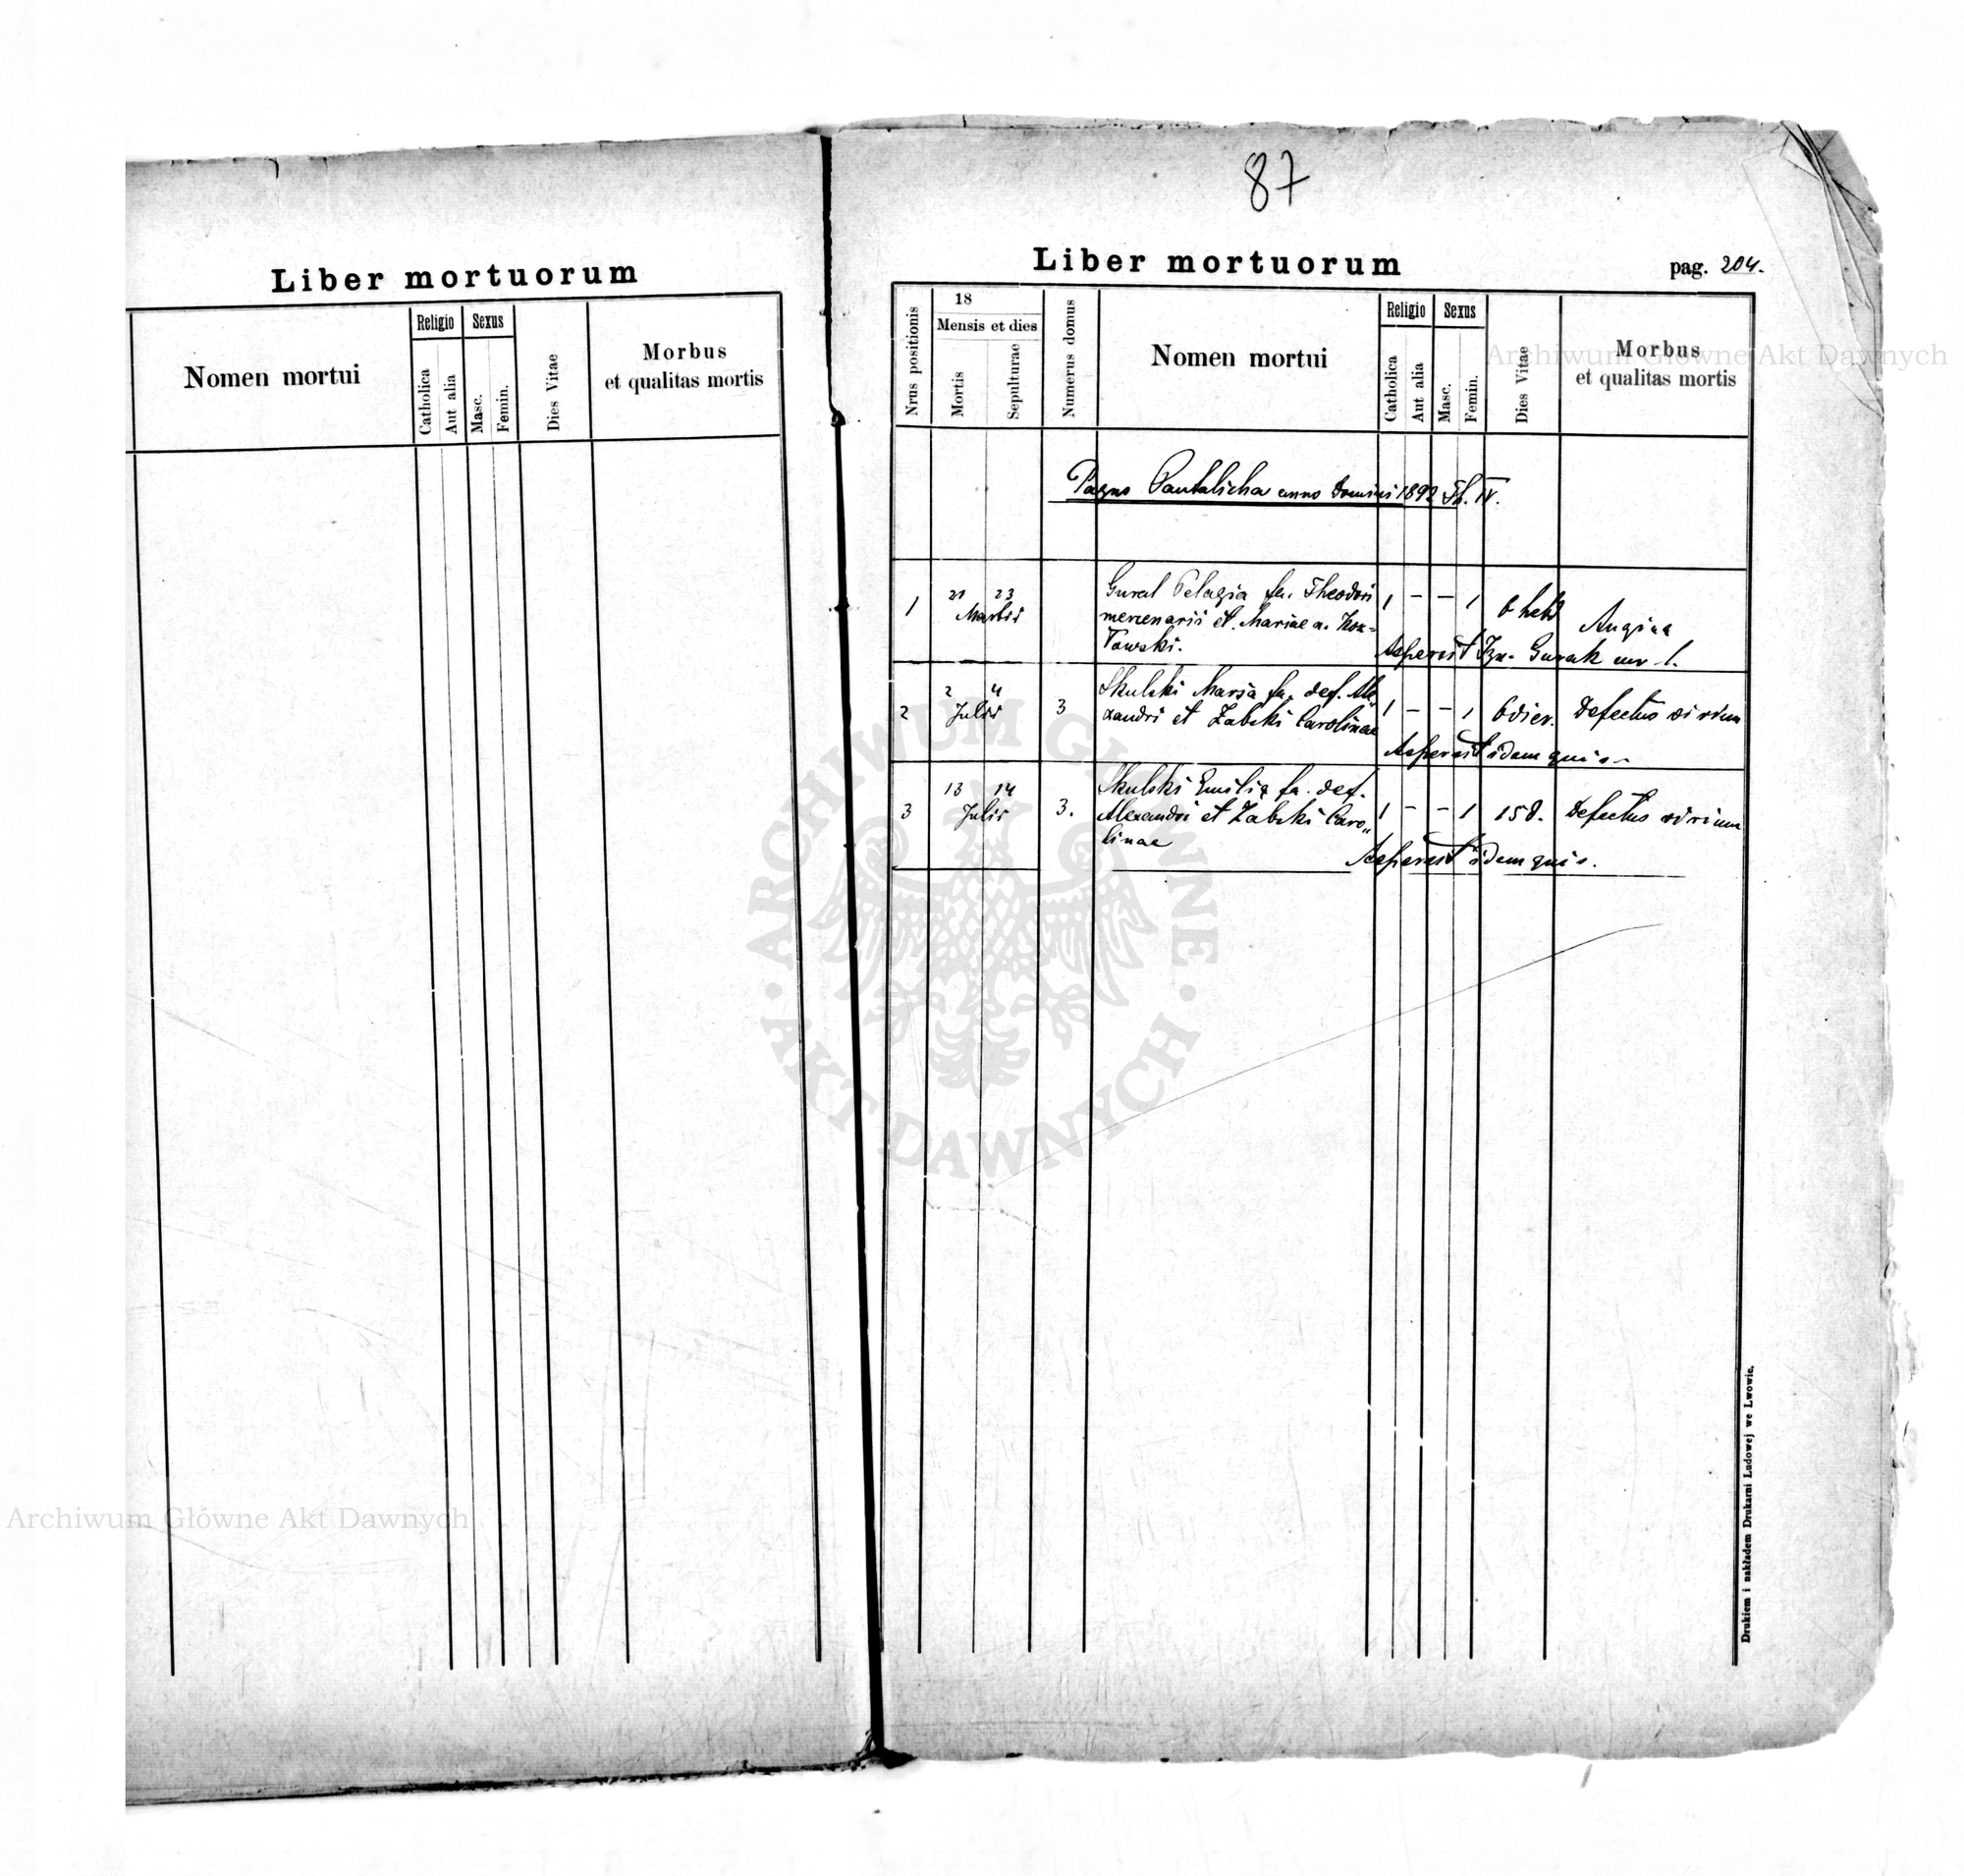 87
Liber mortuorum
Nomen mortui
Religio
Catholica
Aut alia
Sexus
Masc.
Femin.
Dies Vitae
Morbus
et qualitas mortis
Liber mortuorum
pag. 204.
Nrus positionis
18
Mensis et dies
Mortis
Sepulturae
Numerus domus
Nomen mortui
Religio
Catholica
Aut alia
Sexus
Masc.
Femin.
Dies Vitae
Morbus
et qualitas mortis
Pagus Pantalicha anno Domini 1892 Th. IV.
1
21 23
Martii
Gural Pelagia fa. Theodori
mercenarii et Mariae a.
1 – – 1
6 hebd
Angina
Aspersit Gurak
2
2 4
Julii
3
Skulski Maria fa. def. Ale„
xandri et Zabski Carolinae
1 – – 1
6 dier.
Defectus virium
Aspersit idem qui s.
3
13 14
Julii
3.
Skulski Emilia fa. def.
Alexandri et Zabski Caro„
linae
1 – – 1
15 d.
Defectus virium
Aspersit idem qui s.
Drukiem i nakładem Drukarni Ludowej we Lwowie.
Archiwum Główne Akt Dawnych
ARCHIWUM GŁÓWNE AKT DAWNYCH
Archiwum Główne Akt Dawnych